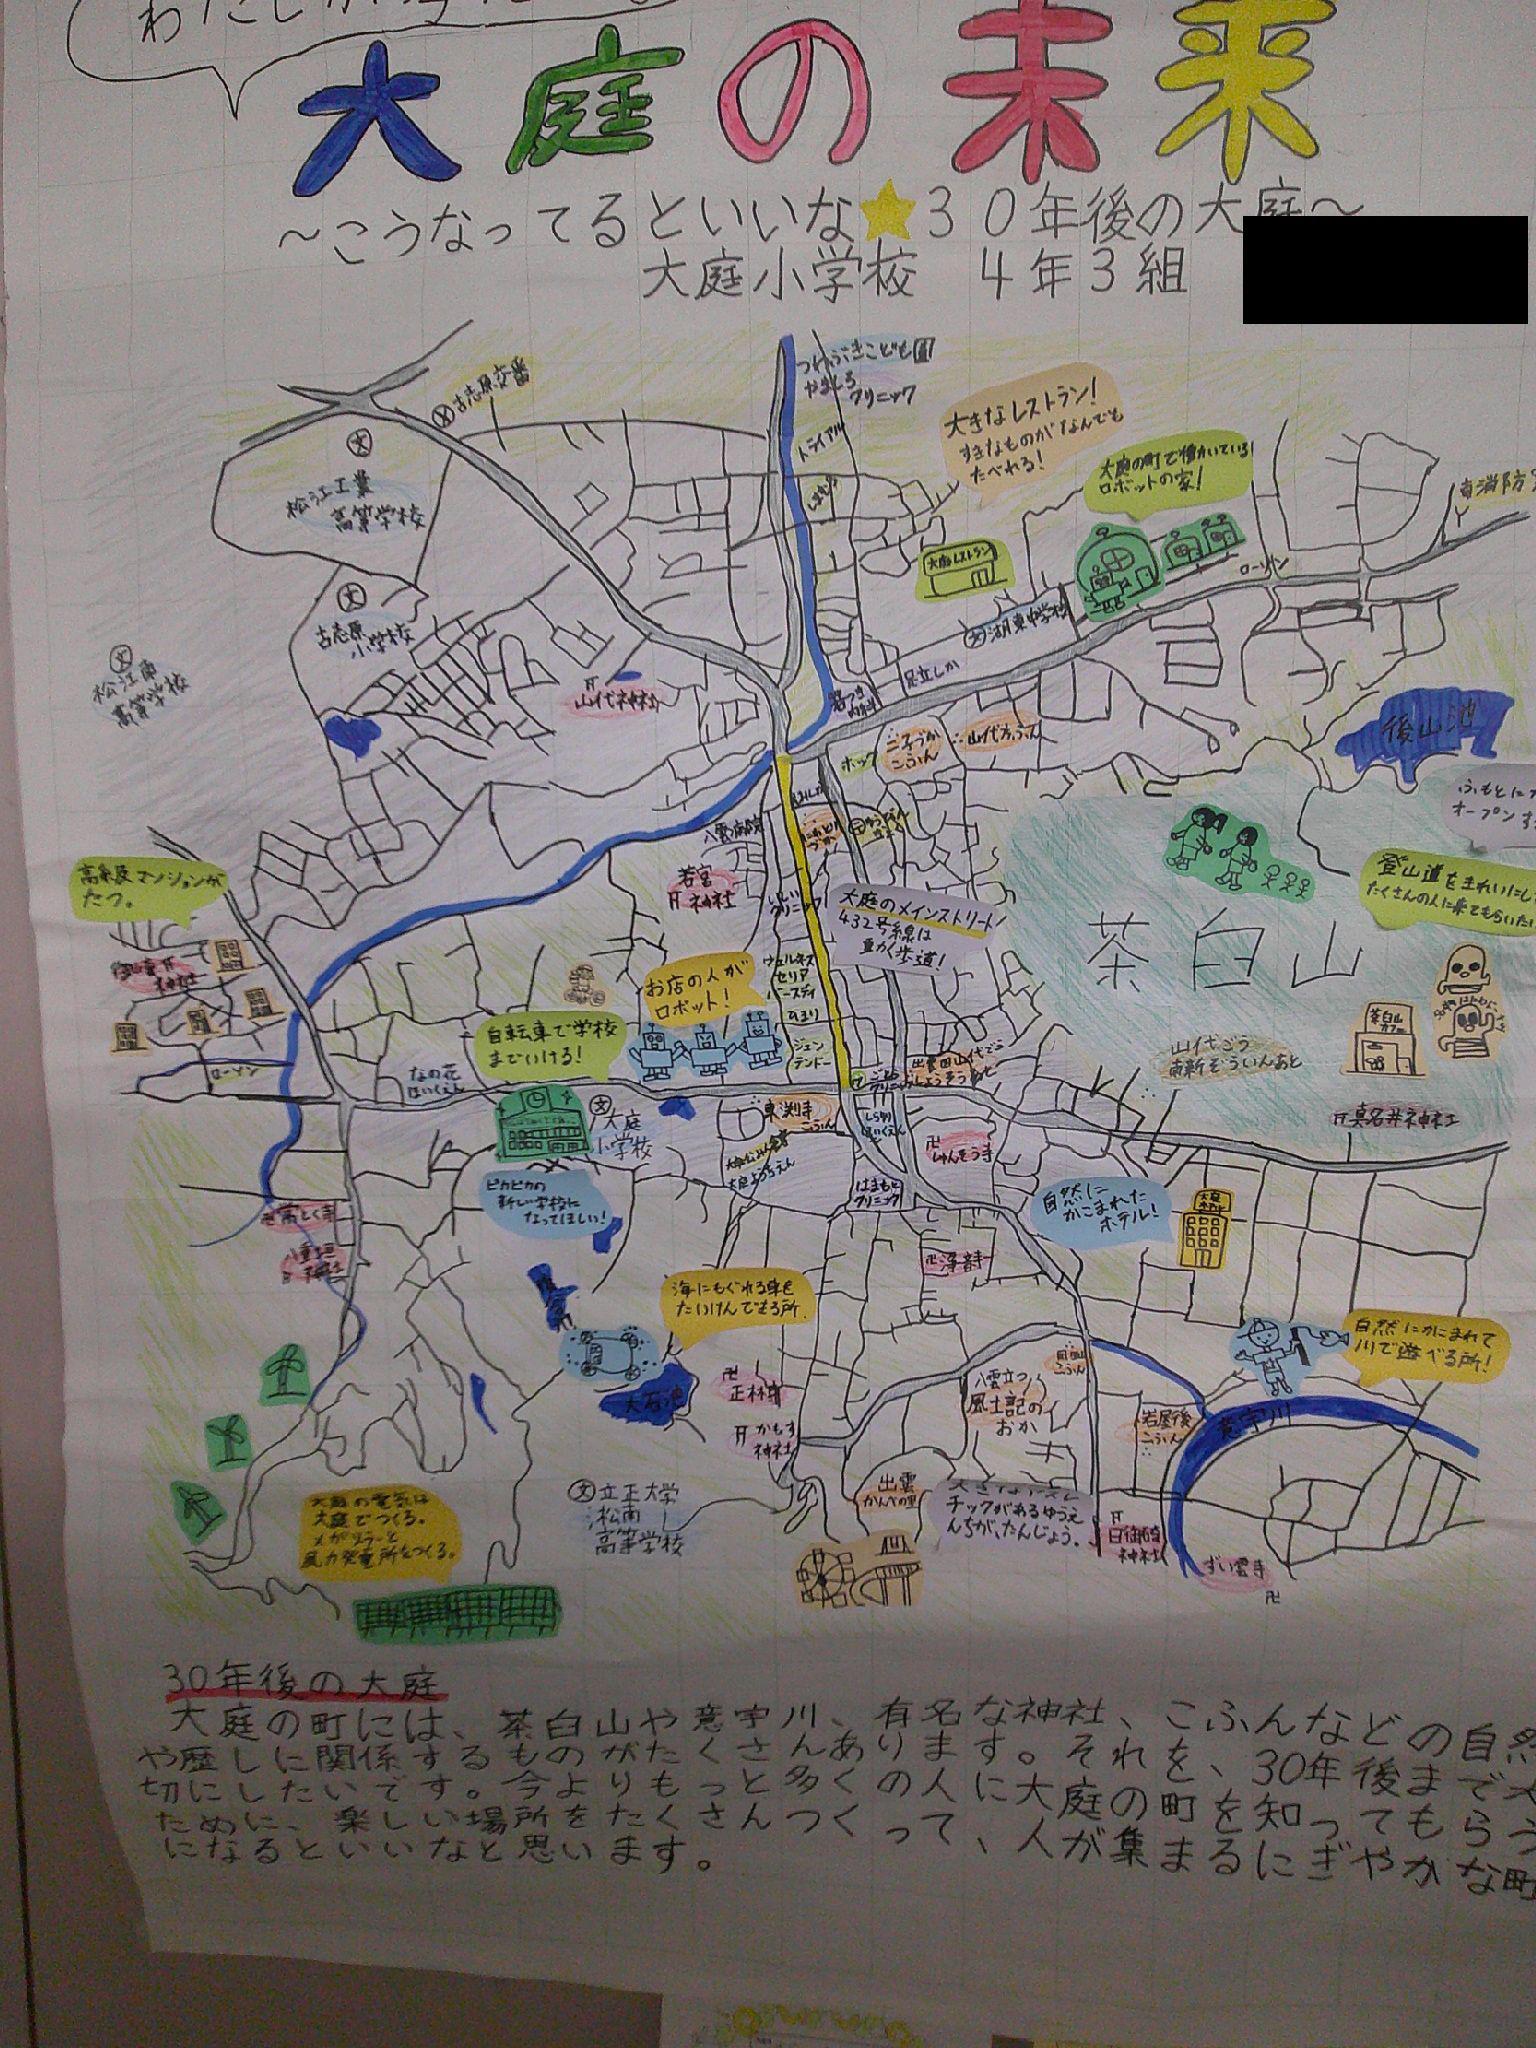 大庭の未来
～こうなってるといいな★30年後の大庭～
大庭小学校 4年3組
古志原交番
やましろ
クリニック
トライアル
松江工業
高等学校
大きなレストラン！
すきなものがなんでも
たべれる！
大庭の町で働いている
ロボットの家！
大庭レストラン
ローソン
東消防
古志原
小学校
湖東中学校
松江南
高等学校
山代神社
足立しか
後山池
山代方ふん
こふん
ホック
八雲病院
若宮
神社
高米屋マンションが
たつ。
ふもとに
オープンす
登山道をきれいにし
たくさんの人に来てもらいたい
大庭のメインストリート
432号線は
動く歩道！
茶臼山
ウェルネス
セリア
お店の人が
ロボット！
自転車で学校
までいける！
ジュン
テンドー
茶臼山
カフェ
ローソン
なの花
ほいくえん
山代ごう
南新ぞういんあと
真名井神社
大庭
小学校
東淵寺
こふん
ピカピカの
新しい学校に
なってほしい！
はまもと
クリニック
自然に
かこまれた
ホテル！
八重垣
神社
浄音寺
海にもぐれる車を
たいけんできる所。
自然にかこまれて
川で遊べる所！
大石池
正林寺
かもす
神社
八雲立つ
風土記の
おか
岩屋後
こふん
意宇川
大庭の電気は
大庭でつくる。
メガソーラーと
風力発電所をつくる。
立正大学
淞南
高等学校
出雲
かんべの里
チックがあるゆうえ
んちが、たんじょう。
日御碕
神社
ずい雲寺
30年後の大庭
大庭の町には、茶臼山や意宇川、有名な神社、こふんなどの自然
や歴しに関係するものがたくさんあります。それを、30年後まで大
切にしたいです。今よりもっと多くの人に大庭の町を知ってもらう
ために、楽しい場所をたくさんつくって、人が集まるにぎやかな町
になるといいなと思います。